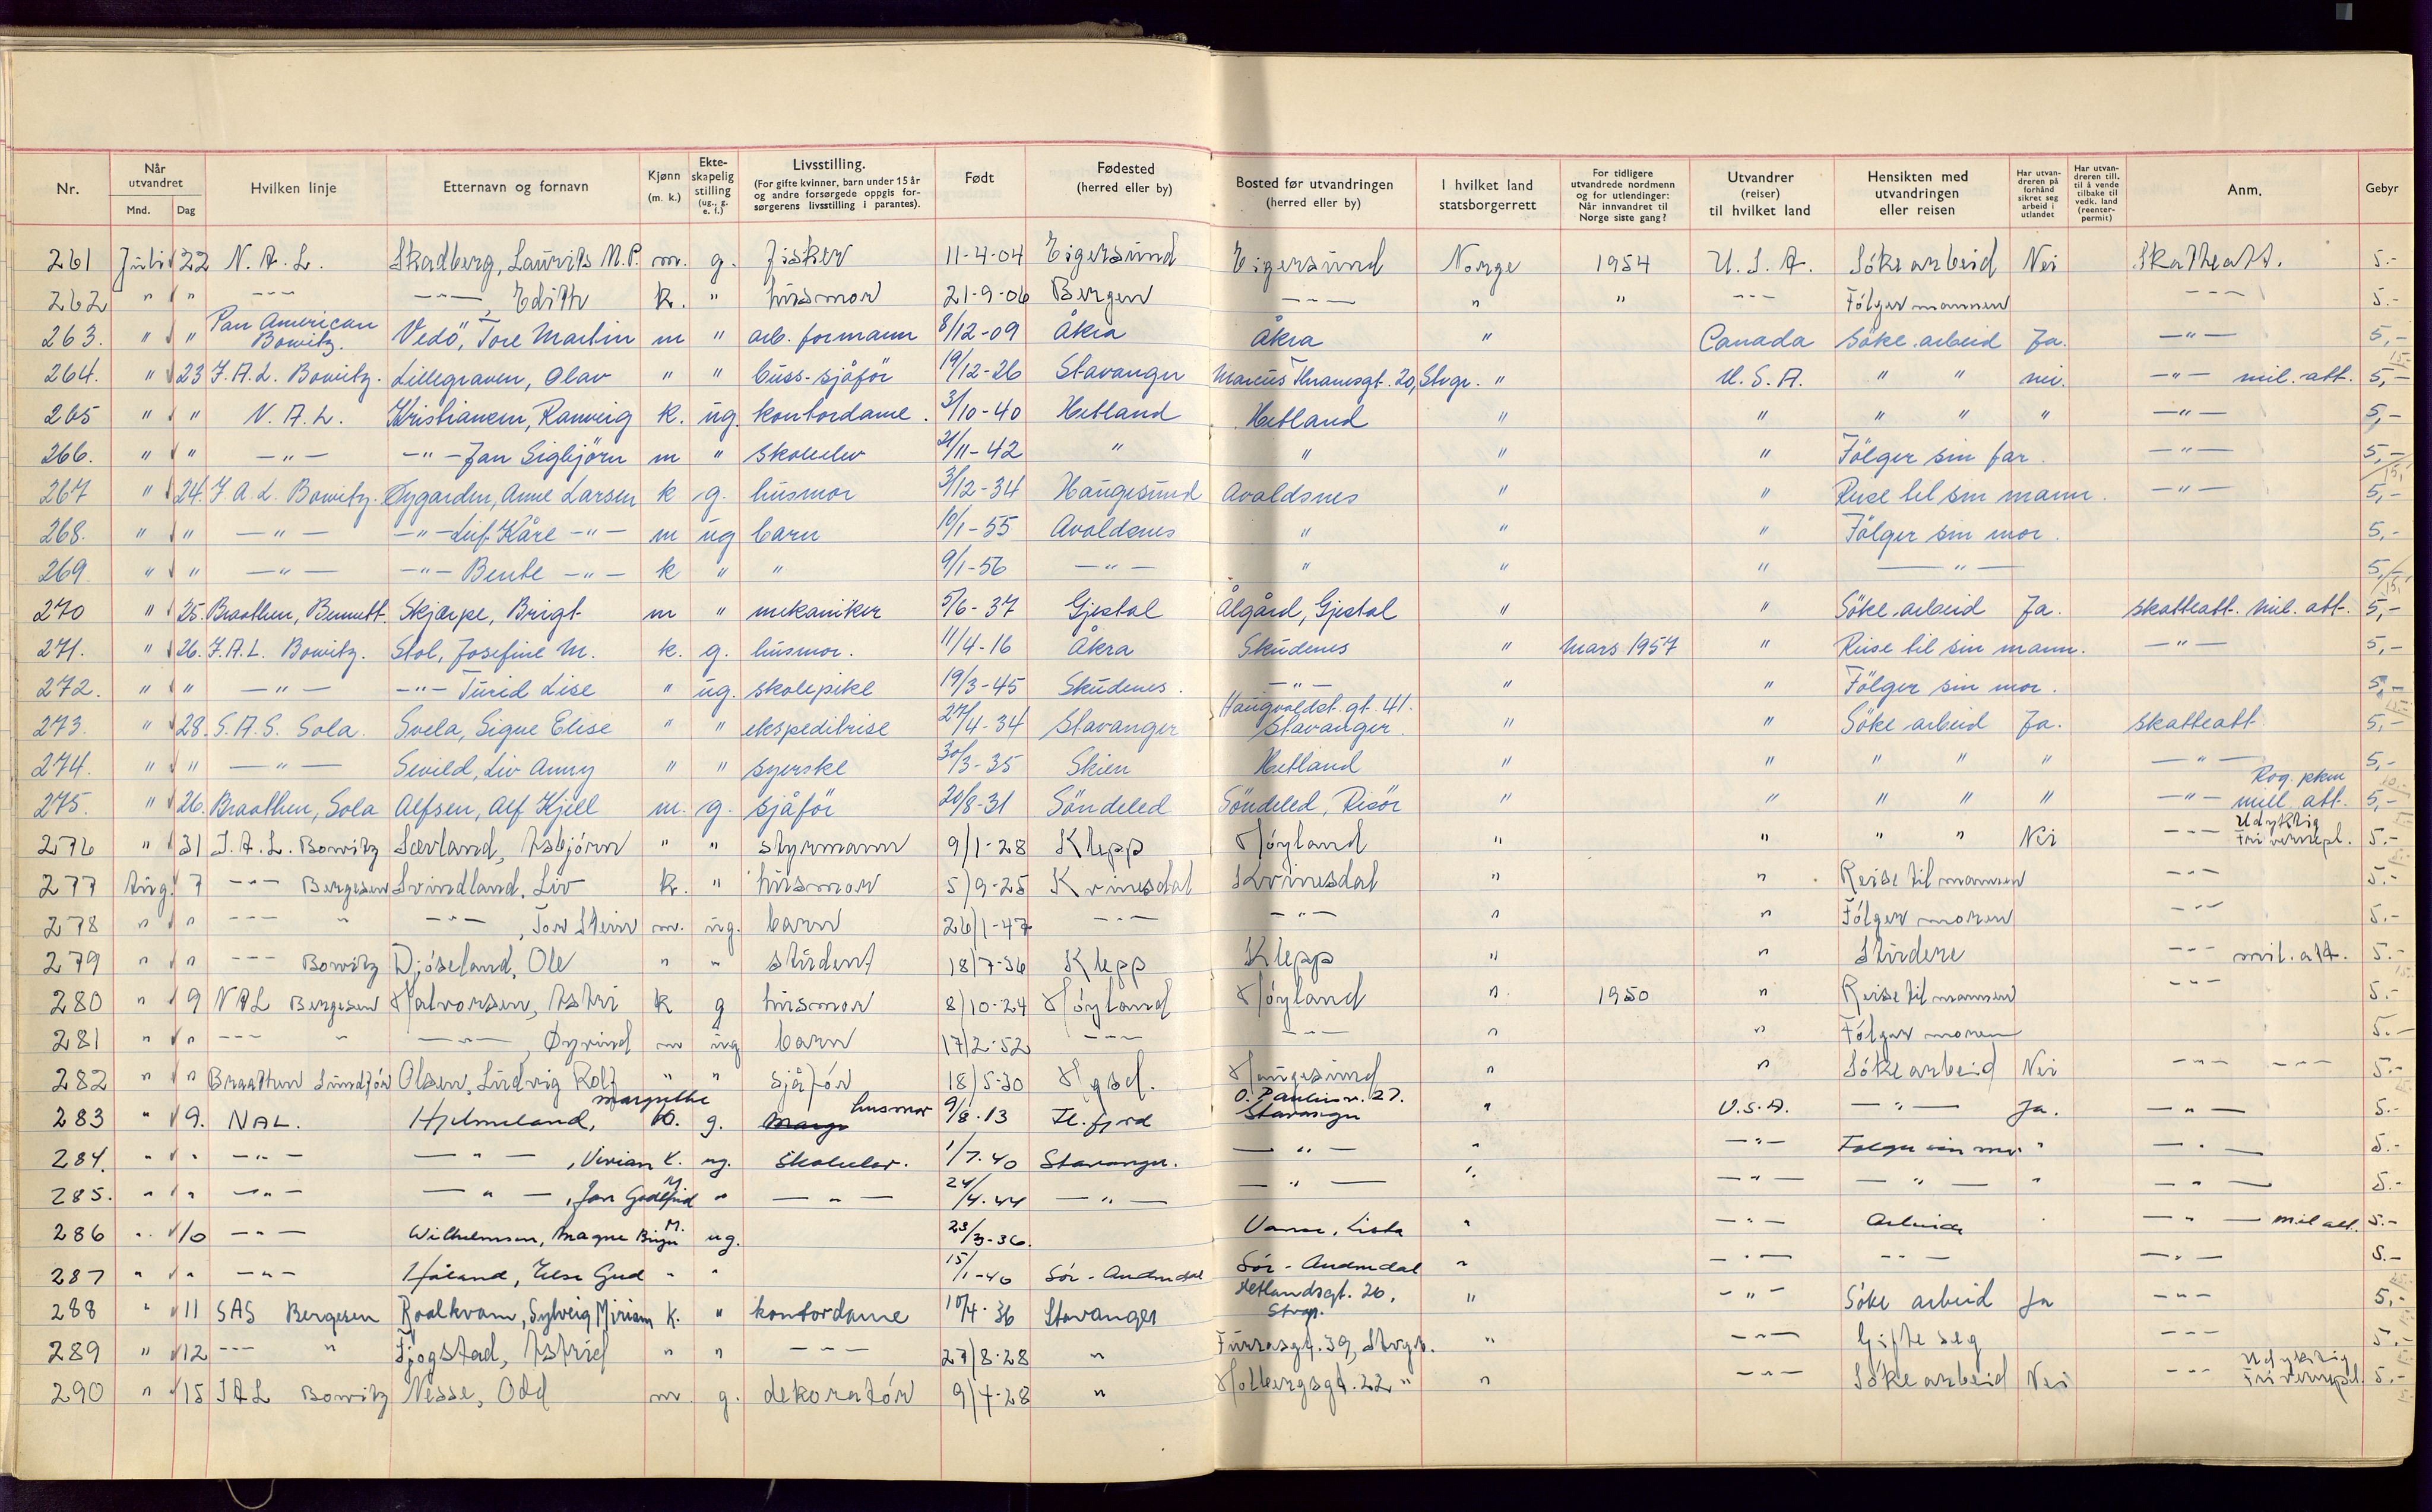 Nr. | Når utvandret Mnd. Dag | Hvilken linje | Etternavn og fornavn | Kjønn (m. k.) | Ekte-skapelig stilling (ug., g. e. f.) | Livsstilling. (For gifte kvinner, barn under 15 år og andre forsørgede oppgis forsørgerens livsstilling i parantes). | Født | Fødested (herred eller by) | Bosted før utvandringen (herred eller by) | I hvilket land statsborgerrett | For tidligere utvandrede nordmenn og for utlendinger: Når innvandret til Norge siste gang? | Utvandrer (reiser) til hvilket land | Hensikten med utvandringen eller reisen | Har utvan-dreren på forhånd sikret seg arbeid i utlandet | Har utvan-dreren till. til å vende tilbake til vedk. land (reenter-permit) | Anm. | Gebyr
261 Juli 22 N. A. L. Skadberg, Laurits M.P. m. g. fisker 11-4-04 Eigersund Eigersund Norge 1954 U. S. A. Söke arbeid Nei Skatteatt. 5.-
262 " " -"- -"-, Edith k. " husmor 21-9-06 Bergen -"- " " -"- Følger mannen -"- 5.-
263. " " Pan American Bowitz. Vedö, Tore Martin m " arb. formann 8/12-09 Åkra Åkra " Canada Söke arbeid Ja. -"- 5,-
264. " 23 I.A.L. Bowitz. Lillegraven, Olav " " buss-sjåför 19/12-26 Stavanger Marcus Thranesgt. 20, Stvgr. " U.S.A. " " nei. -"- mil. att. 5,-
265 " " N.A.L. Kristiansen, Ranveig k. ug. kontordame. 3/10-40 Hetland Hetland " " " " " -"- 5,-
266. " " -"- -"- Jan Sigbjörn m " skoleelev 21/11-42 " " " " Fölger sin far. -"- 5,-
267 " 24. I.A.L. Bowitz. Øygarden, Anne Larsen k g. husmor 3/12-34 Haugesund Avaldsnes " " Reise til sin mann. -"- 5,-
268. " " -"- -"- Leif Kåre -"- m ug barn 10/1-55 Avaldsnes " " " Fölger sin mor. 5,-
269 " " -"- -"- Bente -"- k " " 9/1-56 -"- " " " -"- 5,-
270 " 25. Braathen, Bennett. Skjærpe, Brigt m " mekaniker 5/6-37 Gjestal Ålgård, Gjestal " " Söke arbeid Ja. skatteatt. mil. att. 5,-
271. " 26. I.A.L. Bowitz. Stol, Josefine M. k. g. husmor. 11/4-16 Åkra Skudenes " mars 1957 " Reise til sin mann. -"- 5,-
272. " " -"- -"- Turid Lise " ug. skolepike 19/3-45 Skudenes. -"- " " Fölger sin mor. 5,-
273. " 28. S.A.S. Sola. Svela, Signe Elise " " ekspeditrise 27/4-34 Stavanger Haugvaldst. gt. 41. Stavanger. " " Söke arbeid Ja. skatteatt 5,-
274. " " -"- Sevild, Liv Anny " " syerske 30/3-35 Skien Hetland " " " " " -"- 5,-
275. " 26. Braathen, Sola Alfsen, Alf Kjell m. g. sjåför 20/8-31 Söndeled Söndeled, Risör " " " " " -"- Rog. pkm mill. att. 5,-
276 " 31 I.A.L. Bowitz Sævland, Asbjörn " " styrmann 9/1-28 Klepp Höyland " " " " Nei -"- Udyktig Fri vernepl. 5.-
277 Aug. 7 -"- Bergesen Svindland, Liv k. " husmor 5/9-25 Kvinesdal Kvinesdal " " Reise til mannen -"- 5.-
278 " " -"- " -"-, Tor Stein m. ug. barn 26/1-47 -"- -"- " " Fölger moren -"- 5.-
279 " " -"- Bowitz Djöseland, Ole " " student 18/7-36 Klepp Klepp " " Studere -"- mil. att. 5.-
280 " 9 NAL Bergesen Halvorsen, Astri k g husmor 8/10-24 Höyland Höyland " 1950 " Reise til mannen -"- 5.-
281 " " -"- " -"-, Øyvind m ug barn 17/2-52 -"- -"- " " Fölger moren 5.-
282 " " Braathen Sundför Olsen, Ludvig Rolf " " sjåför 18/5-30 Hgsd. Haugesund " " Söke arbeid Nei -"- -"- 5.-
283 " 9. NAL. Hjelmeland, Margrethe K. g. husmor 9/8.13 Fl. fjord O. Paulusv. 27. Stavanger " U.S.A. -"- Ja. -"- 5.-
284. " " -"- -"-, Vivian K. ug. Skoleelev. 1/7.40 Stavanger. -"- " -"- Følger sin mor. " -"- 5.-
285. " " -"- -"-, Jan Godtfrid M " -"- 24/4.44 -"- -"- " -"- -"- " -"- 5.-
286 " 10 -"- Wilhelmsen, Magne Birger M. ug. 23/3-36. Vanse, Lista " -"- Arbeide -"- mil att. 5.-
287 " " -"- Håland, Else Gud " " 15/1-40 Sör-Audnedal Sör-Audnedal " -"- -"- -"- 5.-
288 " 11 SAS Bergesen Roalkvam, Sylveig Miriam K. " kontordame 10/4.36 Stavanger Hetlandsgt. 20, Stvgr. " -"- Söke arbeid Ja -"- 5,-
289 " 12 -"- " Fjogstad, Astrid " " -"- 27/8.28 " Furrasgt. 39, Stvgr. " -"- Gifte seg -"- 5.-
290 " 15 IAL Bowitz Nesse, Odd m. g. dekoratör 9/7-28 " Holbergsgt. 22 " " -"- Söke arbeid Nei -"- Udyktig Fri vernepl. 5.-